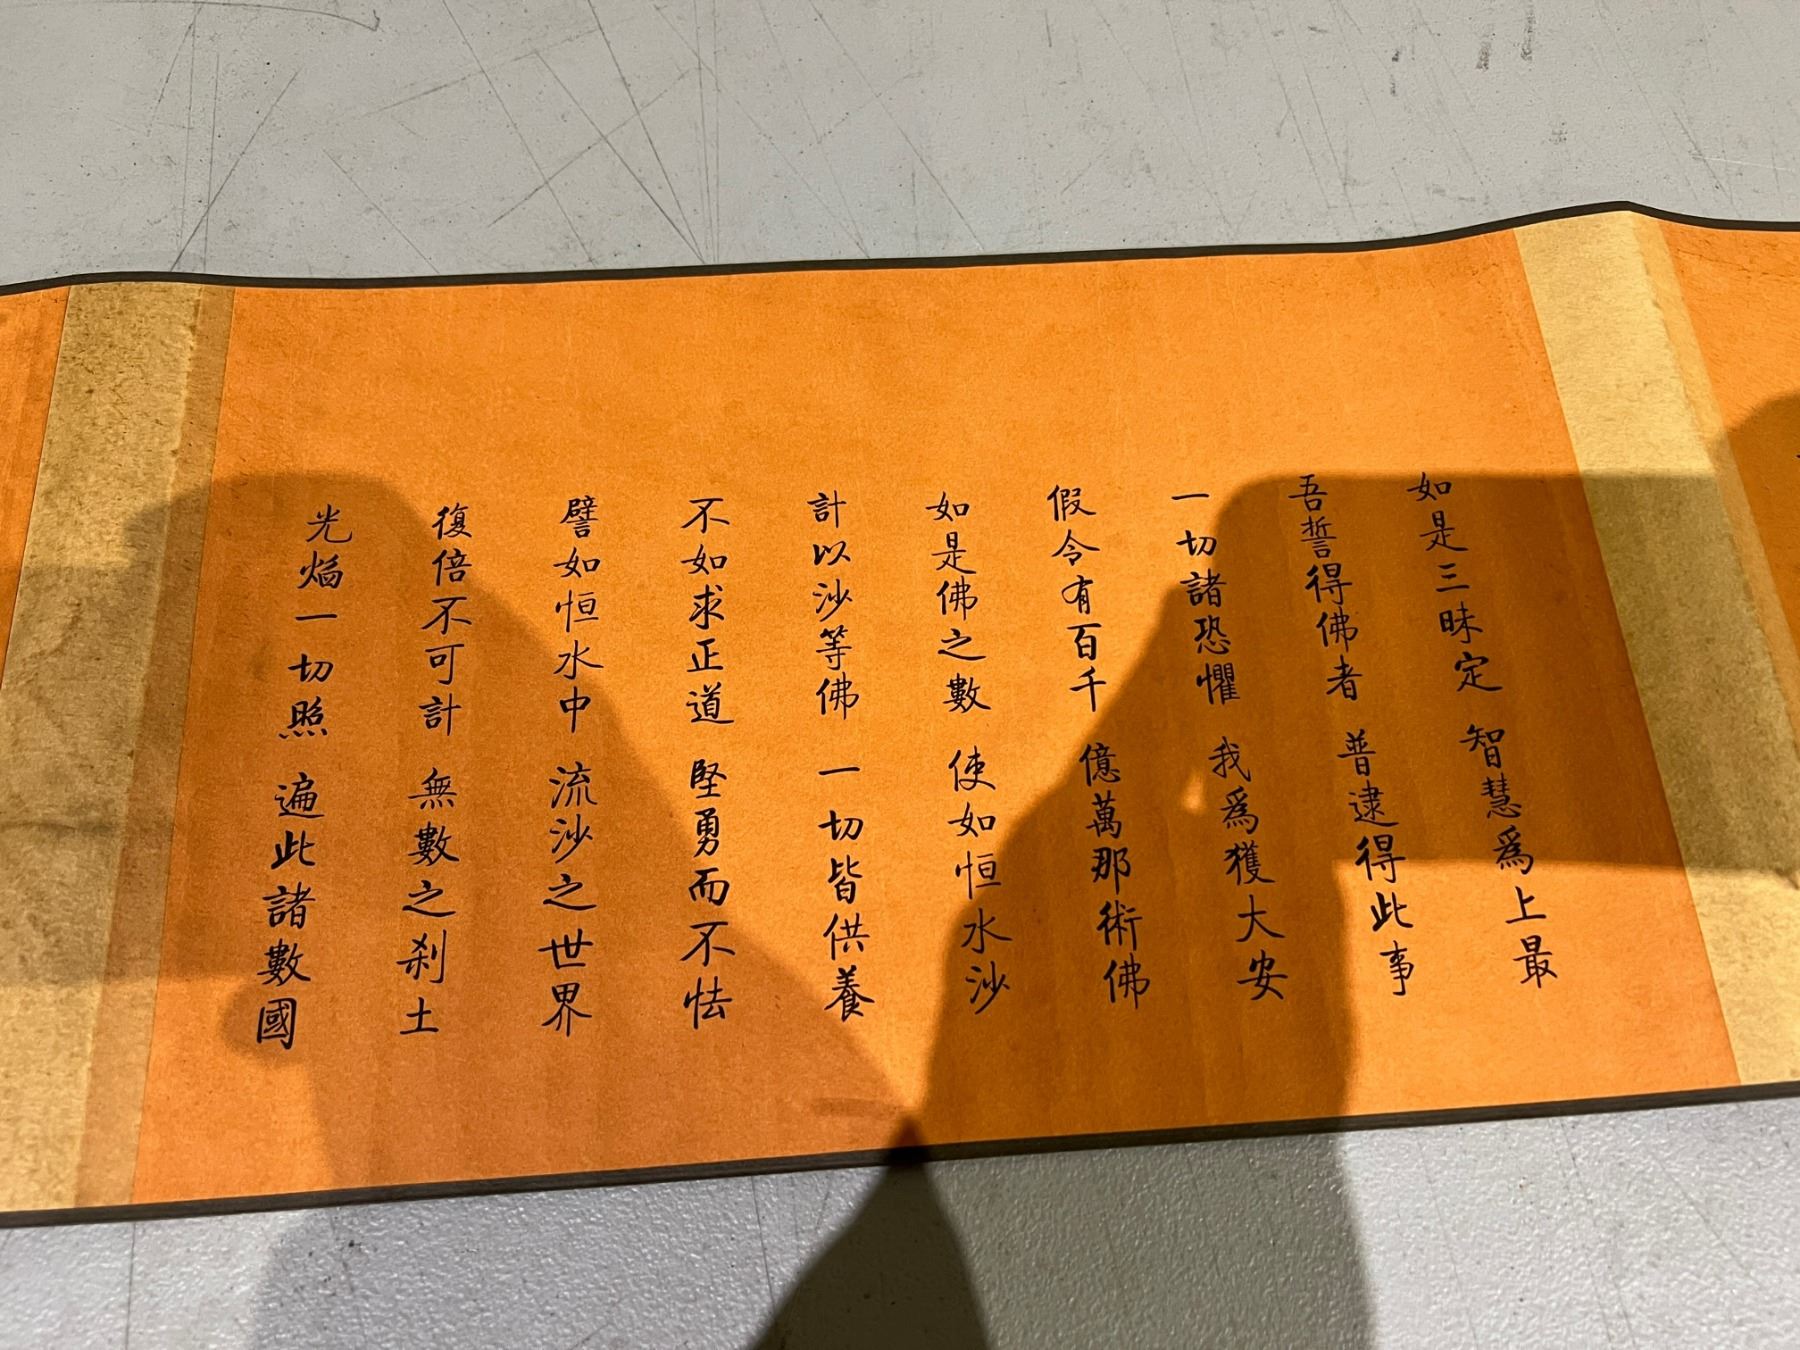 如是三昧定 智慧爲上最
吾誓得佛者 普逮得此事
一切諸恐懼 我爲獲大安
假令有百千 億萬那術佛
如是佛之數 使如恒水沙
計以沙等佛 一切皆供養
不如求正道 堅勇而不怯
譬如恒水中 流沙之世界
復倍不可計 無數之刹土
光焰一切照 遍此諸數國